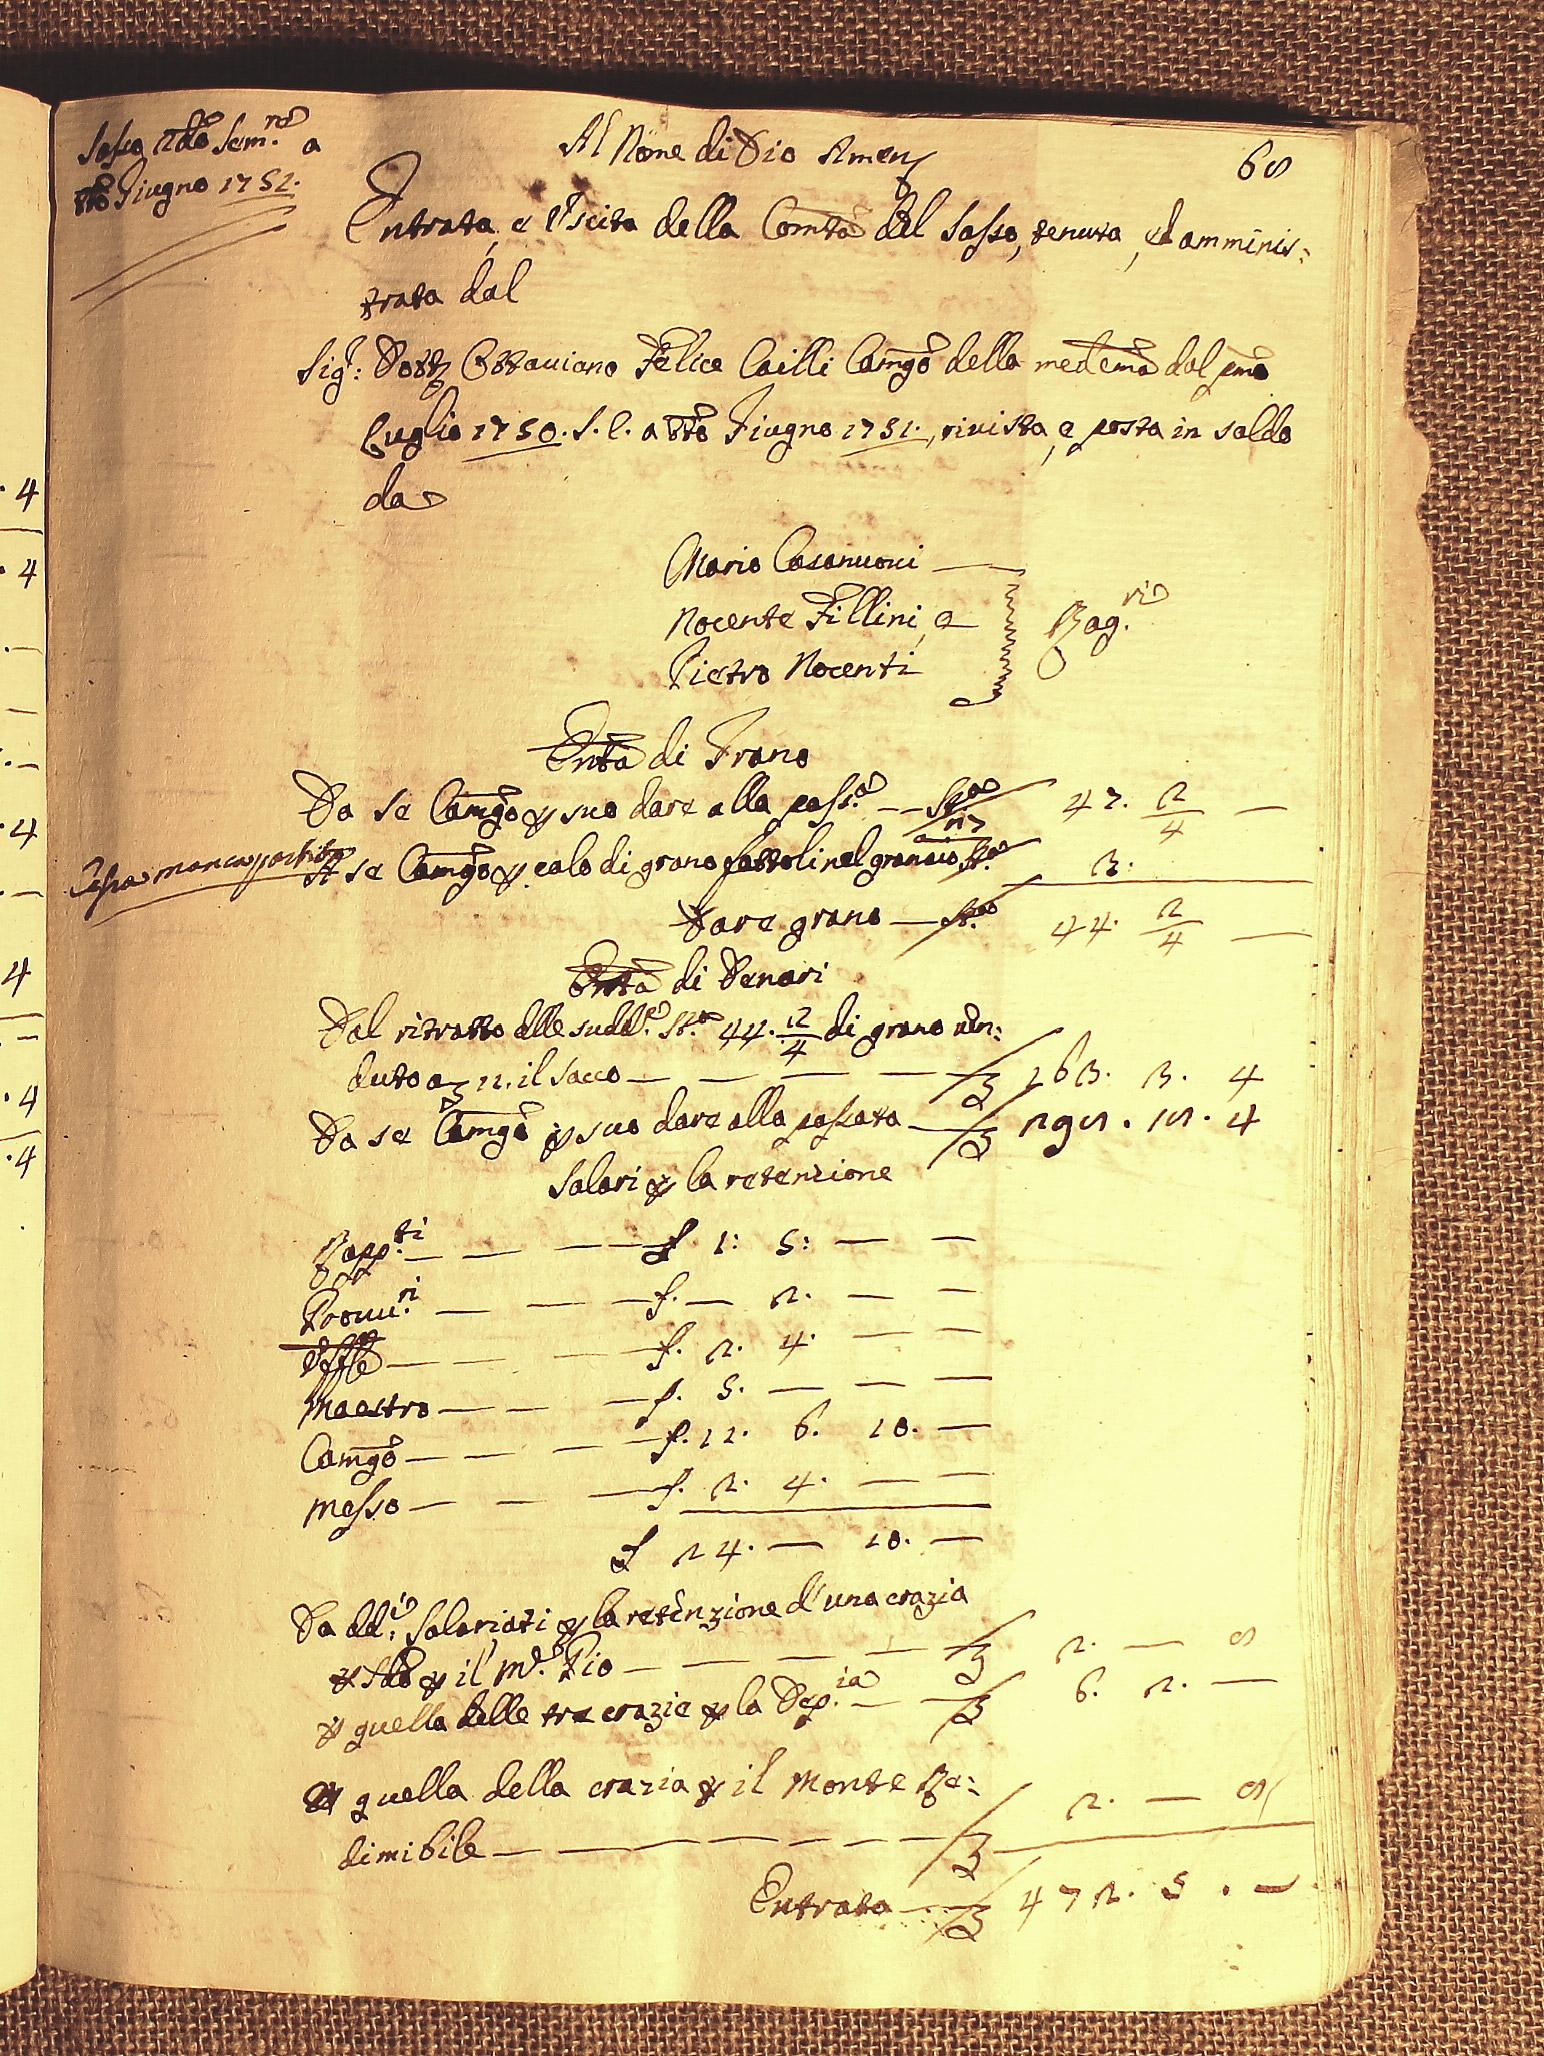 Sasso 2do Sem.re a
tto Giugno 1751.
Al Nome di Dio Amen
68
Entrata, e Uscita della Comtà del Sasso, tenuta, ed amminis:
trata dal
Sig.: Dott. Ottaviano Felice Cailli Camgo della medema dal pmo
Luglio 1750. S. C. a tto Giugno 1751., rivista, e posta in saldo
da
Mario Casanuoui
Nocente Fillini, e
Pietro Nocenti
Rag.ri
Entta di Grano
Da se Camgo p suo dare alla pass.a — St.a 47. 2/4 —
A se Camgo p calo di grano fattoli nel granaio St.a 3.
Dare grano — St.a 44. 2/4 —
Entta di Denari
Dal ritratto delle sudd.e St.a 44. 2/4 di grano ven:
duto a 11. il sacco — — — — 163. 3. 4
Da se Camgo p suo dare alla passata — 298. 18. 4
Salari p la retenzione
Rapp.ti — — — f 1: 5: — —
Prouu.ri — — — f. — 2. — —
— — — f. 2. 4. — —
Maestro — — — f. 5. — — —
Camgo — — — f. 11. 6. 10. —
Messo — — — f. 2. 4. — —
f 24. — 10. —
Da dd.i Salariati p la retenzione d'una crazia
p sdo p il M.e Pio — — — — 2. — 8
p quella delle tre crazie p la Dep.ia — — 6. 2. —
p quella della crazia p il Monte Re:
dimibile — — — — — — 2. — 8
Entrata — 472. 5. —